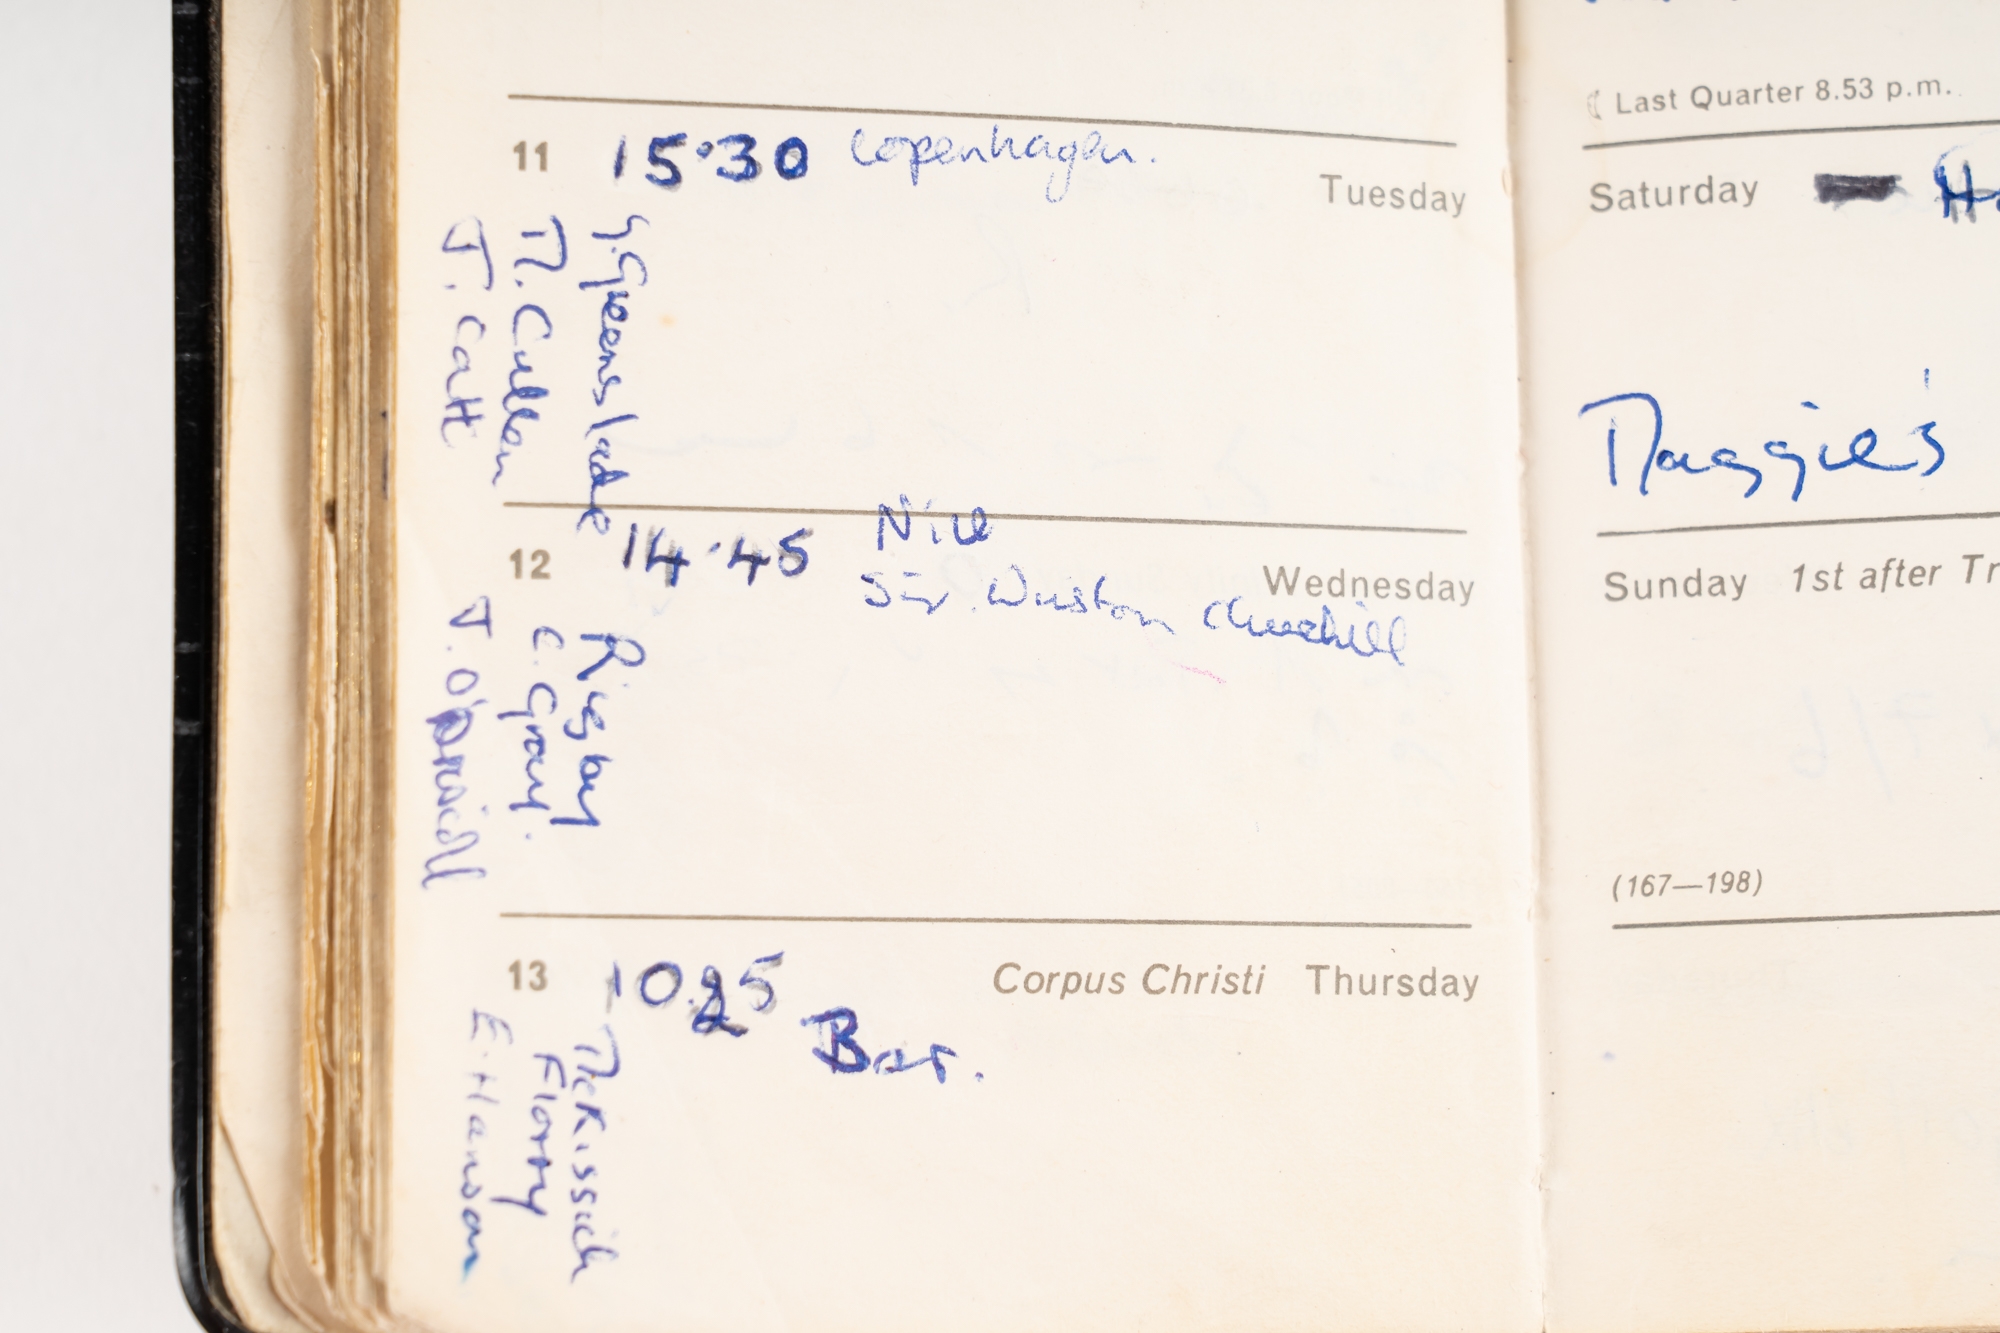 11 15·30 Copenhagen.
Tuesday
G. Greenslade
M. Cullen
J. Catt
12 14·45 Nice
Wednesday
Sir. Winston Churchill
Rigby
C. Gray.
J.
13 10.25 Corpus Christi Thursday
Bar.
McKissick
Florry
E. Hanson
Last Quarter 8.53 p.m.
Saturday
Maggie's
Sunday 1st after
(167—198)